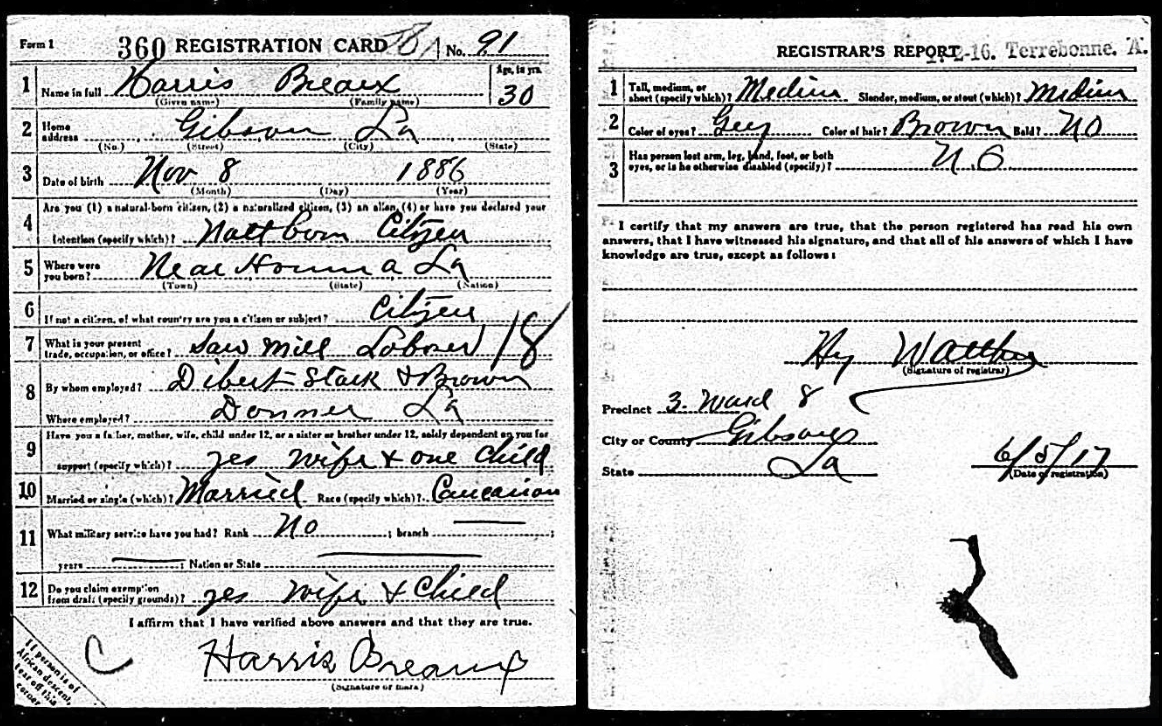 Form 1 360 REGISTRATION CARD No. 91
1 Name in full Harris Breaux Age, in yrs. 30
(Given name) (Family name)
2 Home address Gibson La
(No.) (Street) (City) (State)
3 Date of birth Nov 8 1886
(Month) (Day) (Year)
4 Are you (1) a natural-born citizen, (2) a naturalized citizen, (3) an alien, (4) or have you declared your
intention (specify which)? Natl born Citizen
5 Where were you born? Near Houma La
(Town) (State) (Nation)
6 If not a citizen, of what country are you a citizen or subject? Citizen
7 What is your present trade, occupation, or office? Saw Mill Laborer 18
8 By whom employed? Dibert Stark & Brown
Where employed? Donner La
9 Have you a father, mother, wife, child under 12, or a sister or brother under 12, solely dependent on you for
support (specify which)? yes wife & one child
10 Married or single (which)? Married Race (specify which)? Caucasian
11 What military service have you had? Rank No ; branch ;
years ; Nation or State
12 Do you claim exemption from draft (specify grounds)? yes wife & Child
I affirm that I have verified above answers and that they are true.
C Harris Breaux
(Signature or mark)
If person is of
African descent,
tear off this
corner
REGISTRAR'S REPORT 17-2-16. Terrebonne. A.
1 Tall, medium, or short (specify which)? Medium Slender, medium, or stout (which)? Medium
2 Color of eyes? Grey Color of hair? Brown Bald? No
3 Has person lost arm, leg, hand, foot, or both
eyes, or is he otherwise disabled (specify)? No
I certify that my answers are true, that the person registered has read his own
answers, that I have witnessed his signature, and that all of his answers of which I have
knowledge are true, except as follows:
Hy
(Signature of registrar)
Precinct 3. Ward 8
City or County Gibson
State La 6/5/17
(Date of registration)